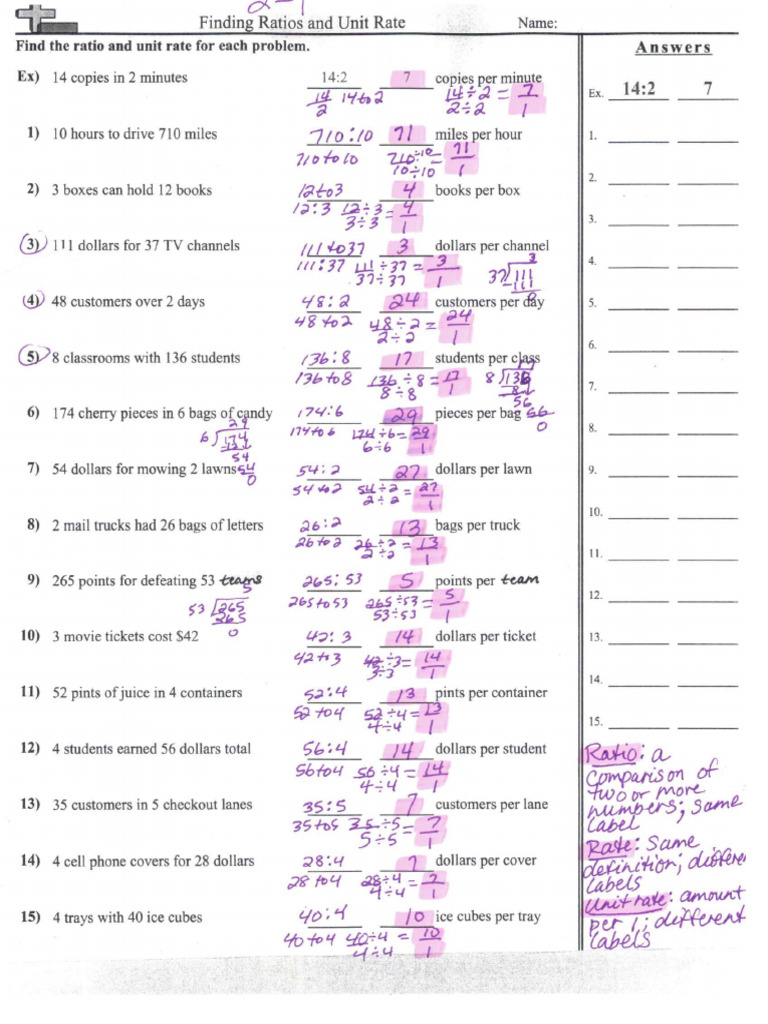 2-1
Finding Ratios and Unit Rate Name:
Find the ratio and unit rate for each problem.
Answers
Ex) 14 copies in 2 minutes 14:2 7 copies per minute
14/2 14 to 2 14÷2/2÷2 = 7/1
Ex. 14:2 7
1) 10 hours to drive 710 miles 710:10 71 miles per hour
710 to 10 710÷10/10÷10 = 71/1
2) 3 boxes can hold 12 books 12 to 3 4 books per box
12:3 12÷3/3÷3 = 4/1
3) 111 dollars for 37 TV channels 111 to 37 3 dollars per channel
111:37 111÷37/37÷37 = 3/1 3
37 111
111
0
4) 48 customers over 2 days 48:2 24 customers per day
48 to 2 48÷2/2÷2 = 24/1
5) 8 classrooms with 136 students 136:8 17 students per class
136 to 8 136÷8/8÷8 = 17/1 17
8 136
8
56
56
0
6) 174 cherry pieces in 6 bags of candy 174:6 29 pieces per bag
174 to 6 174÷6/6÷6 = 29/1
29
6 174
12
54
54
0
7) 54 dollars for mowing 2 lawns 54:2 27 dollars per lawn
54 to 2 54÷2/2÷2 = 27/1
8) 2 mail trucks had 26 bags of letters 26:2 13 bags per truck
26 to 2 26÷2/2÷2 = 13/1
9) 265 points for defeating 53 teams 265:53 5 points per team
265 to 53 265÷53/53÷53 = 5/1
5
53 265
265
0
10) 3 movie tickets cost $42 42:3 14 dollars per ticket
42 to 3 42÷3/3÷3 = 14/1
11) 52 pints of juice in 4 containers 52:4 13 pints per container
52 to 4 52÷4/4÷4 = 13/1
12) 4 students earned 56 dollars total 56:4 14 dollars per student
56 to 4 56÷4/4÷4 = 14/1
13) 35 customers in 5 checkout lanes 35:5 7 customers per lane
35 to 5 35÷5/5÷5 = 7/1
14) 4 cell phone covers for 28 dollars 28:4 7 dollars per cover
28 to 4 28÷4/4÷4 = 7/1
15) 4 trays with 40 ice cubes 40:4 10 ice cubes per tray
40 to 4 40÷4/4÷4 = 10/1
1.
2.
3.
4.
5.
6.
7.
8.
9.
10.
11.
12.
13.
14.
15.
Ratio: a
Comparison of
two or more
numbers; same
label
Rate: Same
definition; differen
labels
Unit rate: amount
per 1; different
labels